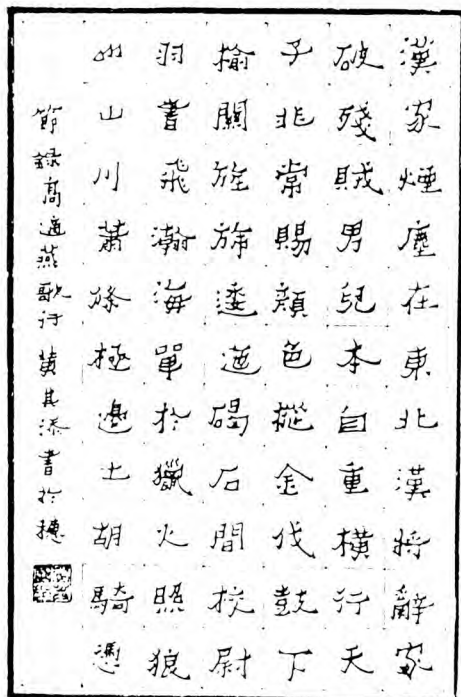 漢家煙塵在東北漢將辭家
破殘賊男兒本自重橫行天
子非常賜顏色摐金伐鼓下
榆關旌旆逶迤碣石間校尉
羽書飛瀚海單於獵火照狼
山山川蕭條極邊土胡騎憑
節錄高適燕歌行 黄其添書於穗